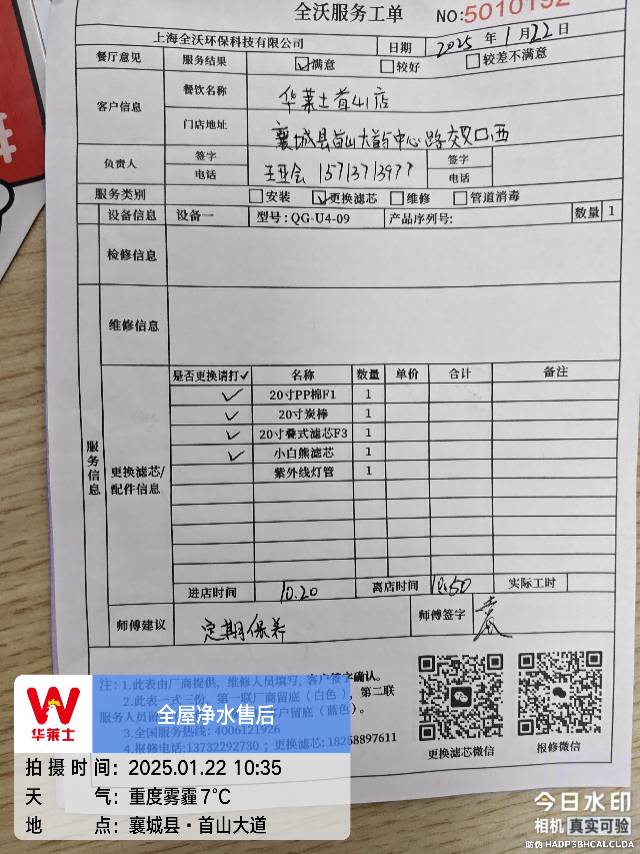 全沃服务工单
NO:5010192
上海全沃环保科技有限公司 日期 2025 年 1 月 22 日
餐厅意见 服务结果 ☑满意 □较好 □较差不满意
客户信息 餐饮名称 华莱士首41店
门店地址 襄城县首山大道与中心路交叉口西
负责人 签字 电话 王亚会 15713713977 签字 电话
服务类别 □安装 ☑更换滤芯 □维修 □管道消毒
设备信息 设备一 型号:QG-U4-09 产品序列号: 数量 1
检修信息
维修信息
服务信息
更换滤芯/配件信息
是否更换请打✓ 名称 数量 单价 合计 备注
✓ 20寸PP棉F1 1
✓ 20寸炭棒 1
✓ 20寸叠式滤芯F3 1
✓ 小白熊滤芯 1
紫外线灯管 1
进店时间 10.20 离店时间 10.50 实际工时
师傅建议 定期保养 师傅签字
注:1.此表由厂商提供,维修人员填写,客户签字确认。
2.此表一式三份,第一联厂商留底(白色),第二联
服务人员留 户留底(蓝色)。
3.全国服务热线:4006121926
4.报修电话:13732292730 ;更换滤芯:18258897611
更换滤芯微信 报修微信
华莱士
全屋净水售后
拍摄时间:2025.01.22 10:35
天 气:重度雾霾 7℃
地 点:襄城县·首山大道
今日水印
相机 真实可验
防伪 HADP3BHCALCLDA